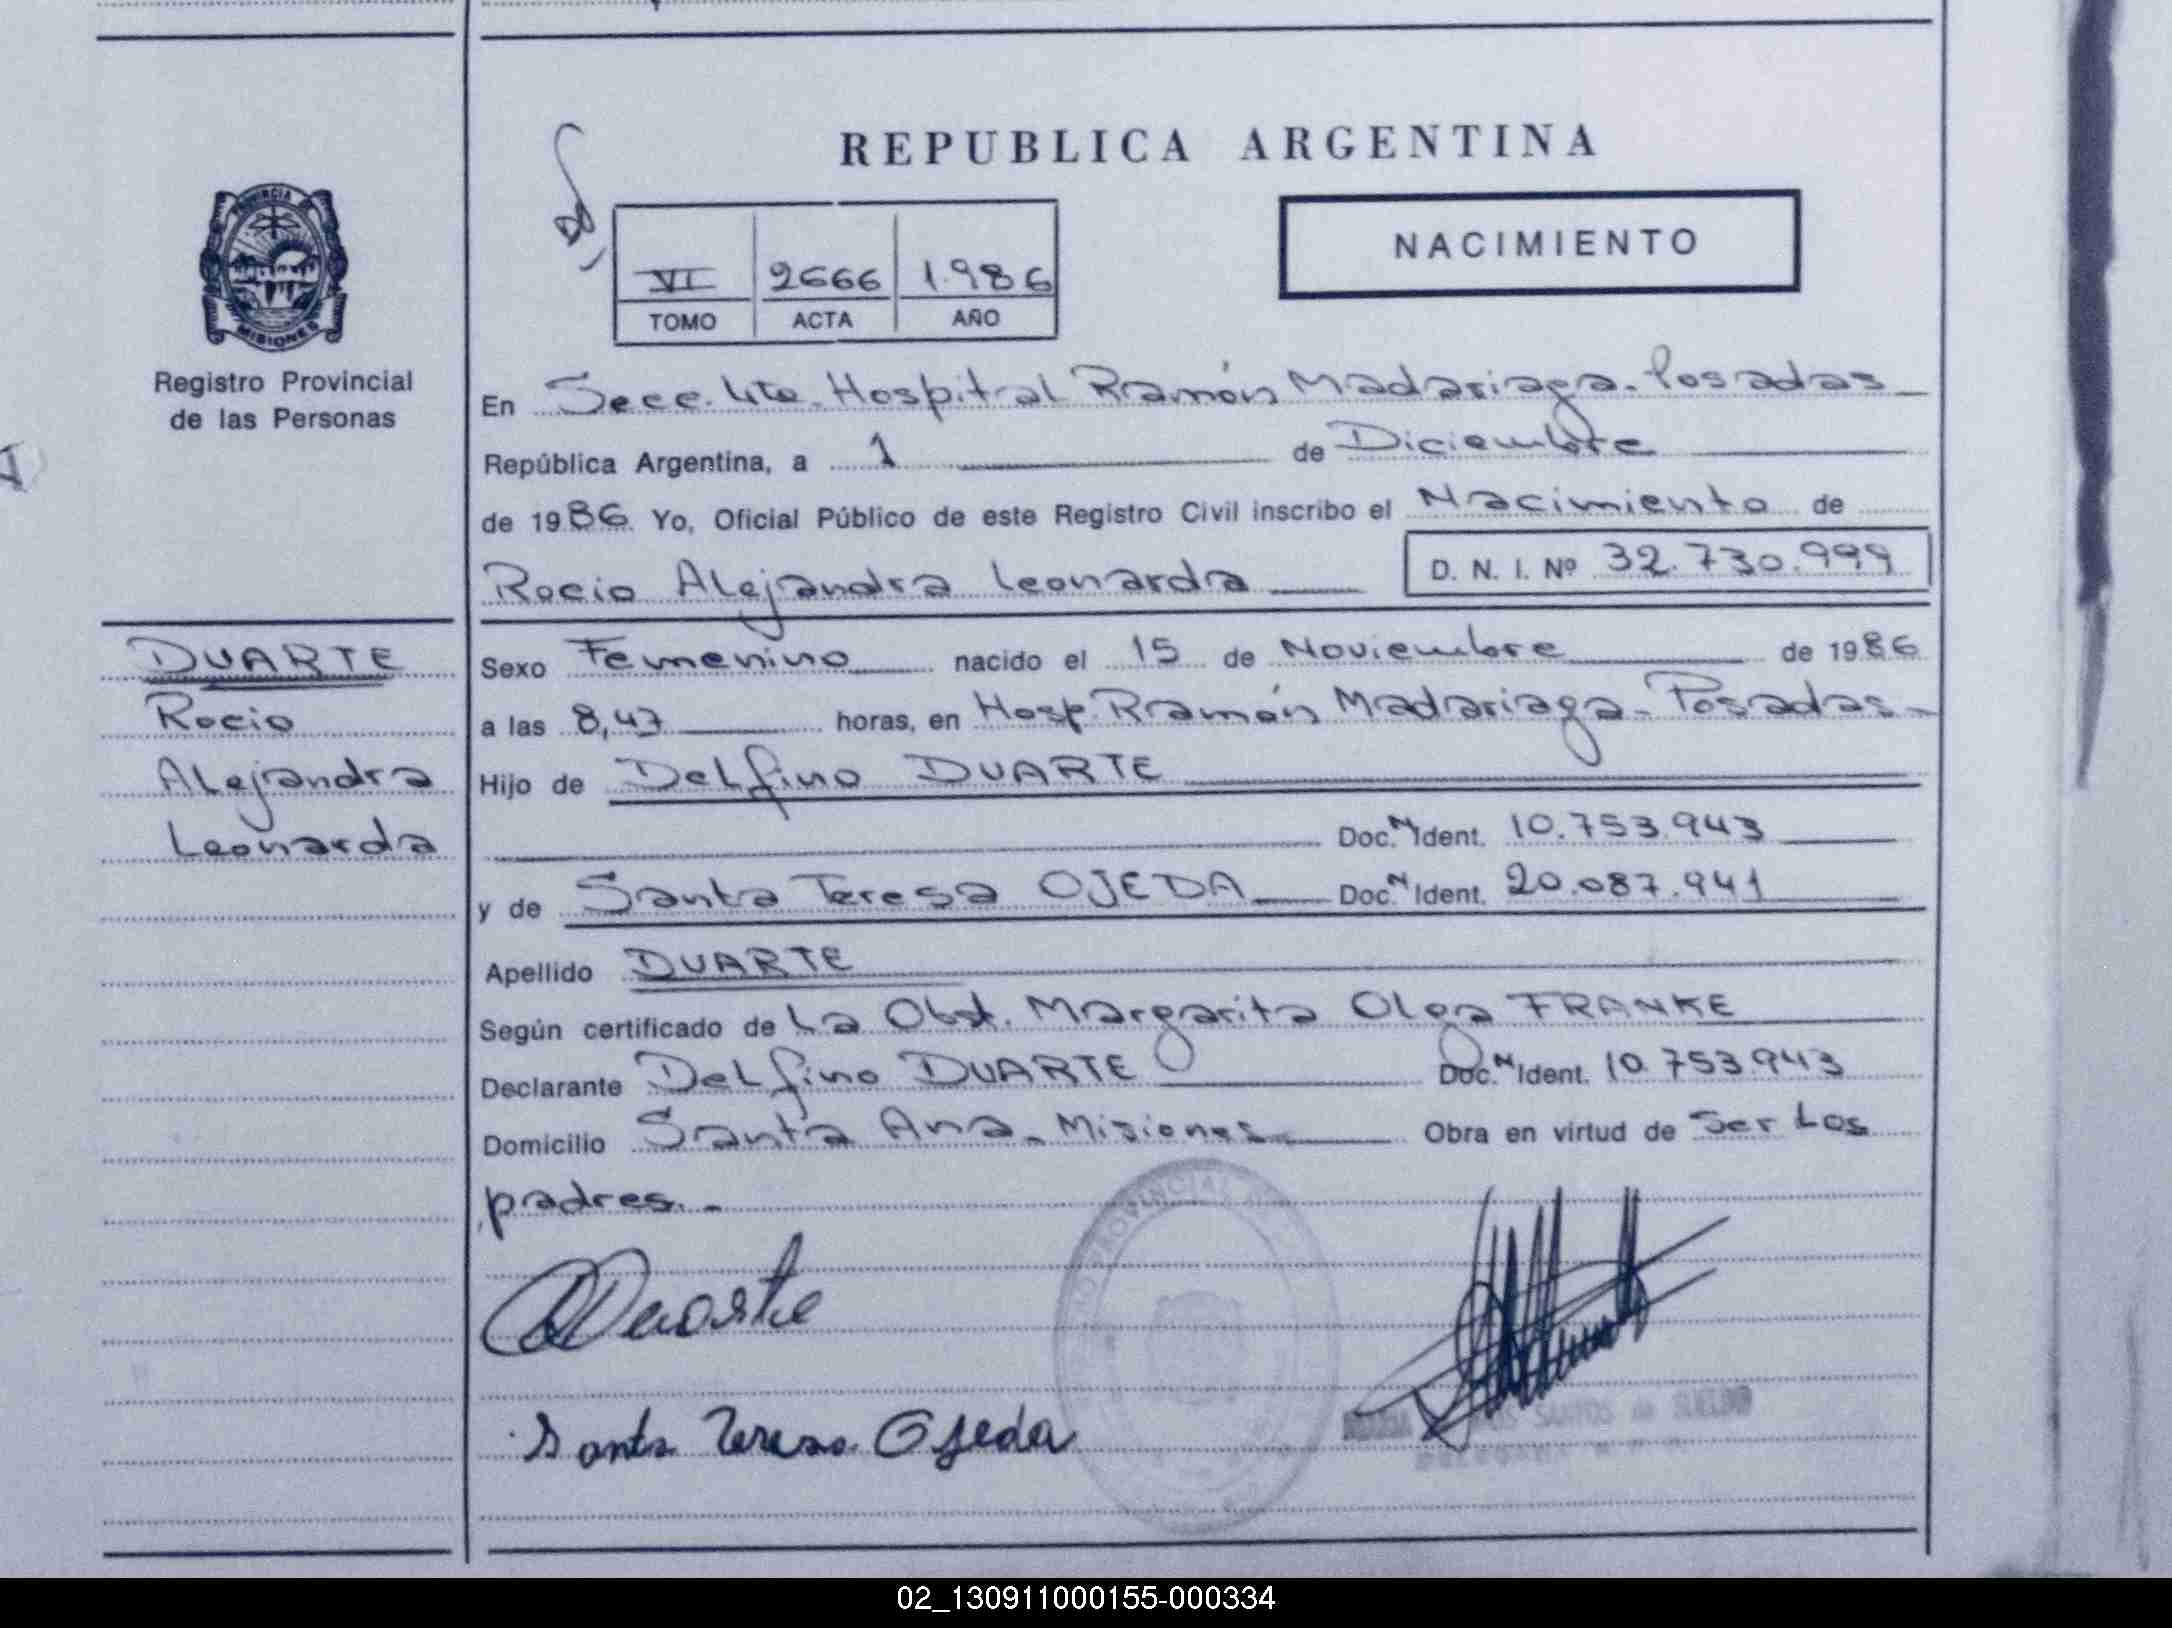 REPUBLICA ARGENTINA
PROVINCIA
MISIONES
Registro Provincial
de las Personas
NACIMIENTO
VI 2666 1.986
TOMO ACTA AÑO
En Secc. 4ta. Hospital Ramón Madariaga - Posadas -
República Argentina, a 1 de Diciembre
de 1986 Yo, Oficial Público de este Registro Civil inscribo el Nacimiento de
Rocio Alejandra Leonarda D. N. I. Nº 32.730.999
DUARTE
Rocio
Alejandra
Leonarda
Sexo Femenino nacido el 15 de Noviembre de 1986
a las 8,47 horas, en Hosp. Ramón Madariaga - Posadas -
Hijo de Delfino DUARTE
Doc. N Ident. 10.753.943
y de Santa Teresa OJEDA Doc. N Ident. 20.087.941
Apellido DUARTE
Según certificado de La Obst. Margarita Olga FRANKE
Declarante Delfino DUARTE Doc. N Ident. 10.753.943
Domicilio Santa Ana - Misiones Obra en virtud de Ser Los
padres. -
Duarte
Santa Teresa Ojeda
SANTOS de
02_130911000155-000334